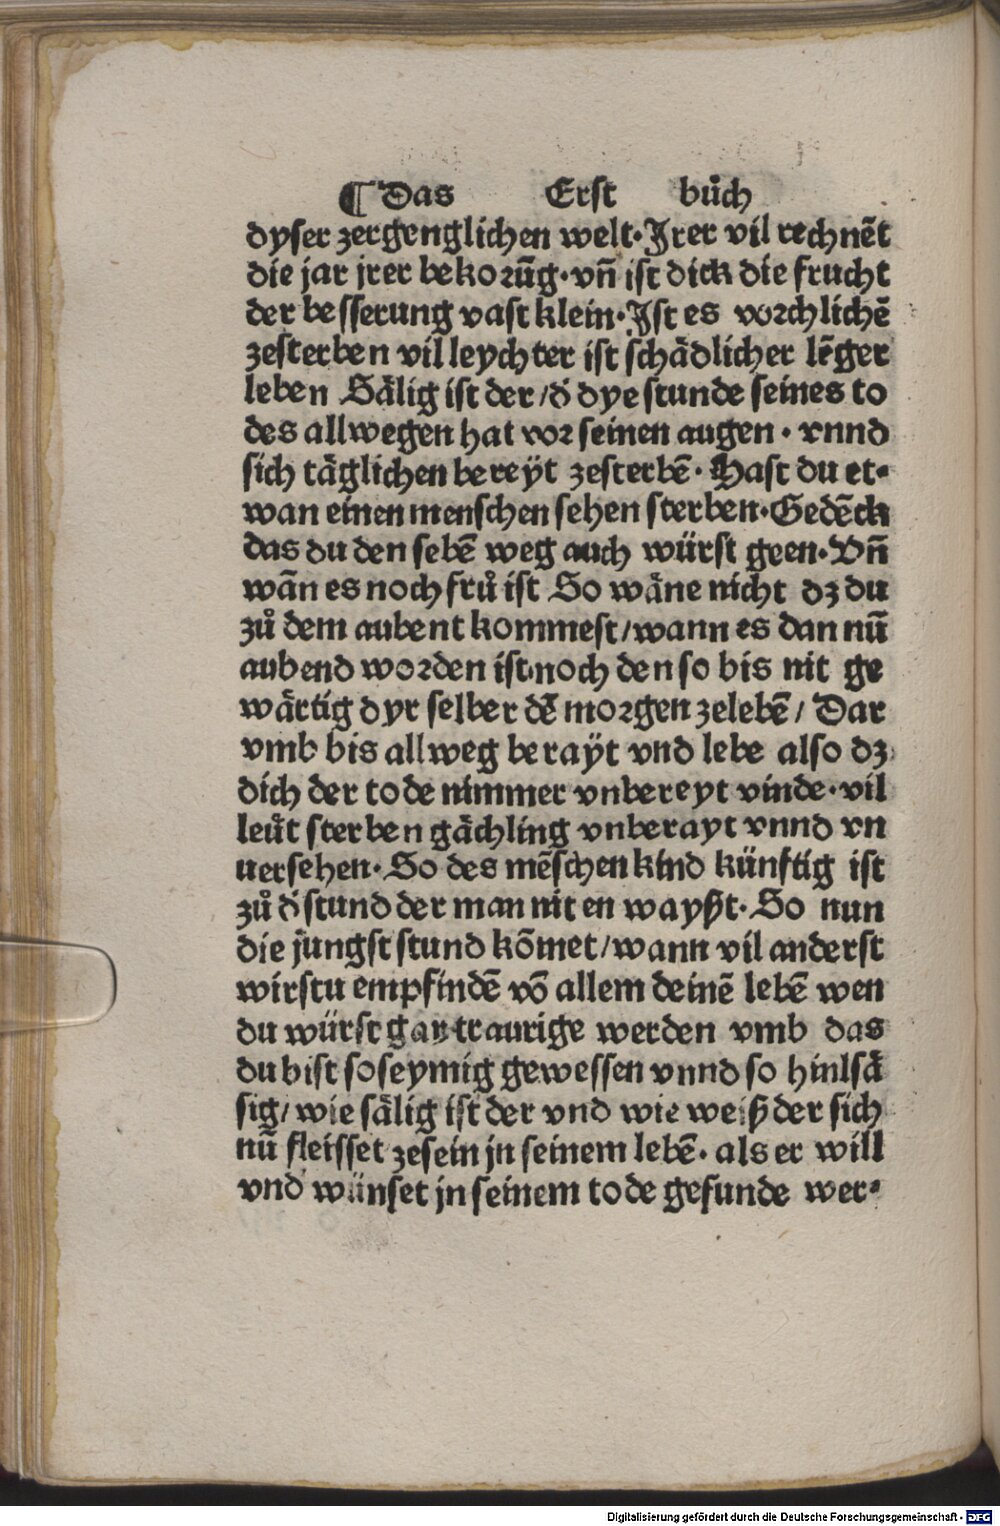 ¶ Das Erst bůch
dyser zergenglichen welt· Jrer vil rechnēt
die jar jrer bekorūg· vn̄ ist dick die frucht
der besserung vast klein· Jst es vorchlichē
zesterben vil leychter ist schädlicher lēger
leben Sälig ist der / d̓ dye stunde seines to
des allwegen hat vor seinen augen · vnnd
sich täglichen bereyt zesterbē· Hast du et-
wan einen menschen sehen sterben· Gedēck
das du den sebē weg auch würst geen· Vn̄
wān es noch frů ist So wäne nicht dz du
zů dem aubent kommest / wann es dan nū
aubend worden ist· noch den so bis nit ge
wärtig dyr selber dē morgen zelebē / Dar
vmb bis allweg berayt vnd lebe also dz
dich der tode nimmer vnbereyt vinde· vil
leüt sterben gächling vnberayt vnnd vn
uersehen· So des mēschen kind künftig ist
zů d̓ stund der man nit en wayßt· So nun
die jungst stund kōmet / wann vil anderst
wirstu empfindē vō allem deinē lebē wen
du würst gar traurige werden vmb das
du bist so seymig gewessen vnnd so hinlsä
sig / wie sälig ist der vnd wie weiß der sich
nū fleisset zesein jn seinem lebē· als er will
vnd wünset jn seinem tode gefunde wer-
Digitalisierung gefördert durch die Deutsche Forschungsgemeinschaft - DFG